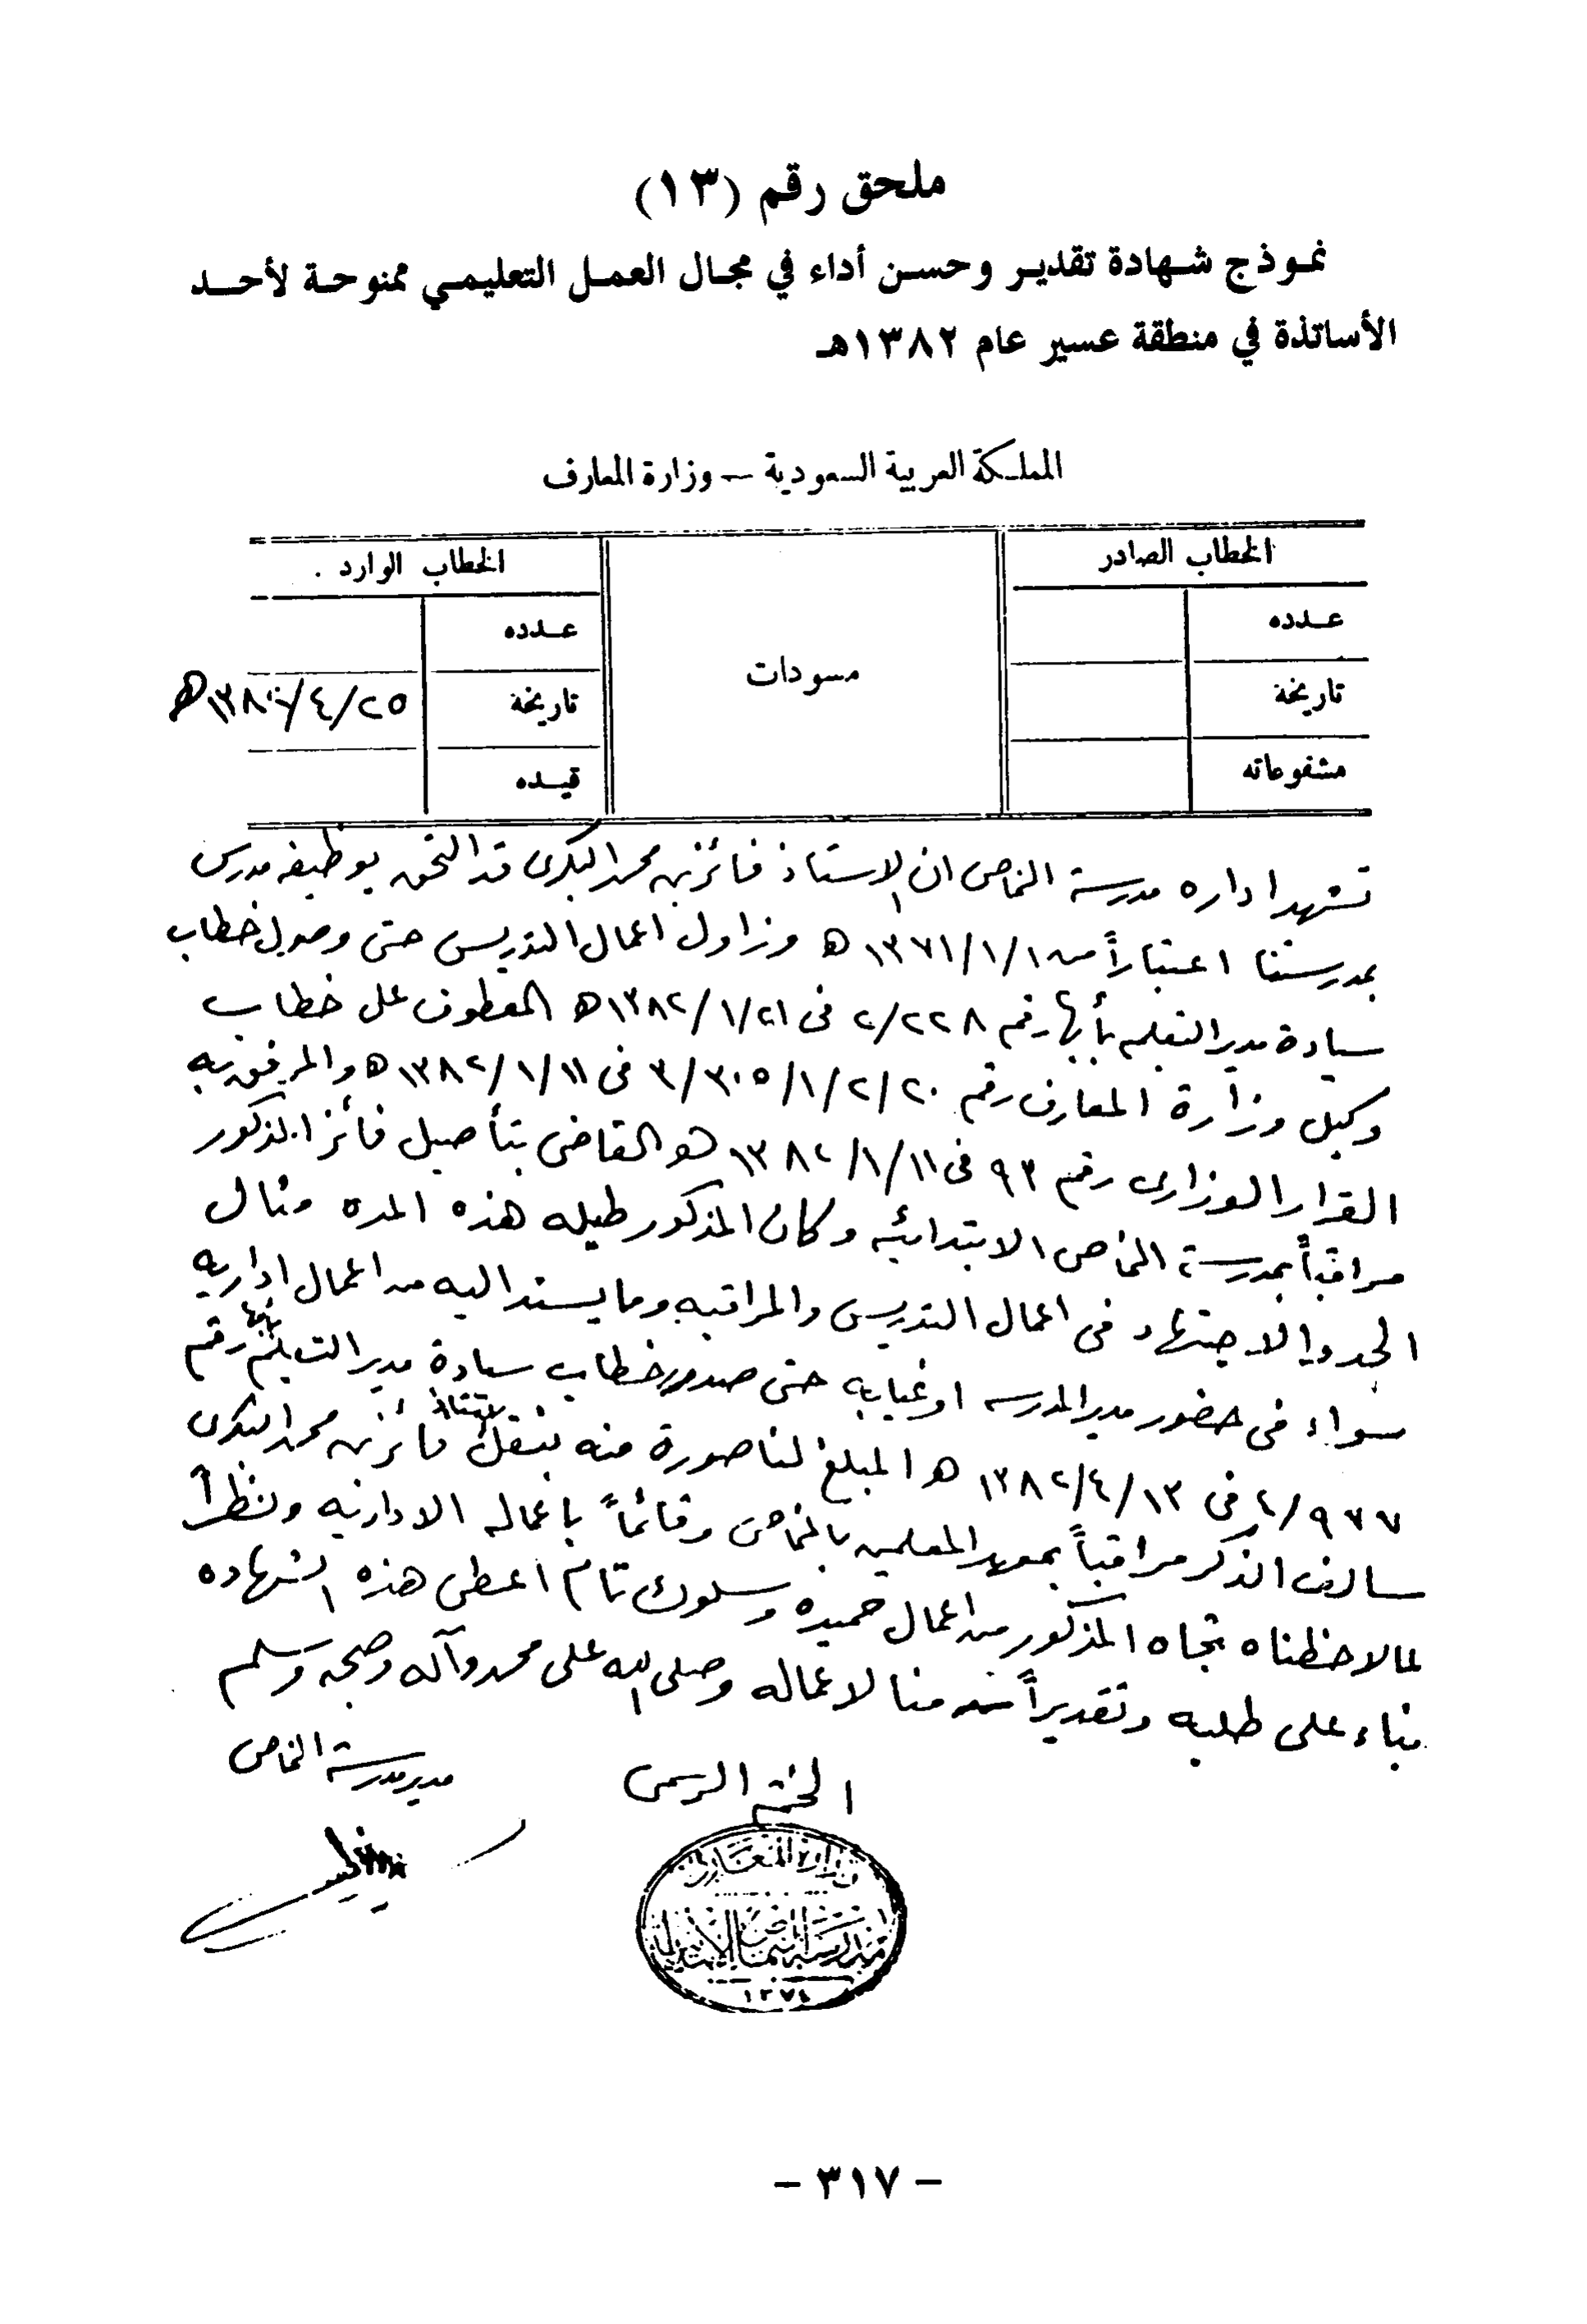 ملحق رقم (١٣)
نموذج شهادة تقدير وحسن أداء في مجال العمل التعليمي ممنوحة لأحد
الأساتذة في منطقة عسير عام ١٣٨٢هـ
المملكة العربية السعودية – وزارة المعارف
الخطاب الصادر
عدده
تاريخة
مشفوعاته
مسودات
الخطاب الوارد .
عدده
تاريخة ٢٥/٤/
قيده
تشهد اداره مدرسة النماص ان الاستاذ فائز بن محمد البكرى قد التحق بوظيفه مدرس
بمدرستنا اعتباراً من ١/١/١٣٧١ ه وزاول اعمال التدريس حتى وصول خطاب
سيادة مدير التعليم بأبها رقم ٢/٢٢٨ فى ١٣٨٢/١/٢١ه المعطوف على خطاب
وكيل وزارة المعارف رقم ٣/٣٠٥/١/٢/٢٠ فى ١٣٨٢/١/١١ ه والمرفق به
القرار الوزارى رقم ٩٣ فى ١٣٨٢/١/١١ ه القاضى بتأصيل فائز المذكور
مراقباً بمدرسة النماص الابتدائيه وكان المذكور طيله هذه المده مثال
الجد والاجتهاد فى اعمال التدريس والمراقبه وما يسند اليه من اعمال اداريه
سواء فى حضور مدير المدرسه او غيابه حتى صدور خطاب سيادة مدير التعليم بأبها رقم
٤/٩٧٧ فى ١٣٨٢/٤/١٣ ه المبلغ لنا صورة منه بنقل فائز بن محمد البكرى
سالف الذكر مراقباً بمعهد المعلمين بالنماص وقائماً باعماله الاداريه ونظراً
لما لاحظناه تجاه المذكور من اعمال حميده وسلوك تام اعطى هذه الشهاده
بناء على طلبه وتقديراً منا لاعماله وصلى الله على محمد وآله وصحبه وسلم
مدير مدرسة النماص
الختم الرسمى
وزارة المعارف
مدرسة النماص الابتدائية
١٣٧٤
– ٣١٧ –